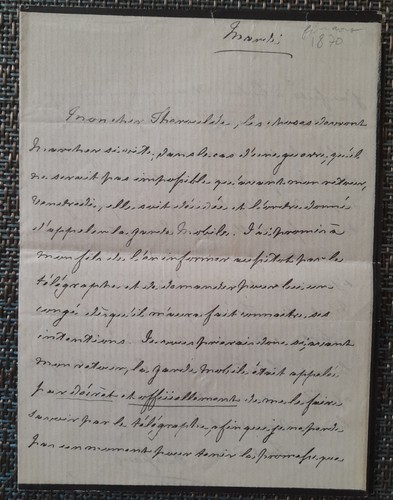 Mardi
1870
Mon cher Thareilde, les choses devront
marcher si vite, dans le cas d'une guerre, qu'il
ne serait pas impossible qu'avant mon retour,
Vendredi, elle soit décidée et l'ordre donné
d'appeler la garde mobile. J'ai promis à
mon fils de l'en informer aussitôt par le
télégraphe et de demander pour lui un
congé dès qu'il m'aura fait connaître ses
intentions. Je vous prierais donc si, avant
mon retour, la garde mobile était appelée
par décret et officiellement de me le faire
savoir par le télégraphe, afin que je ne perde
pas un moment pour tenir la promesse que